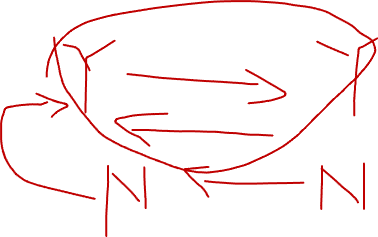 Y Y
N N